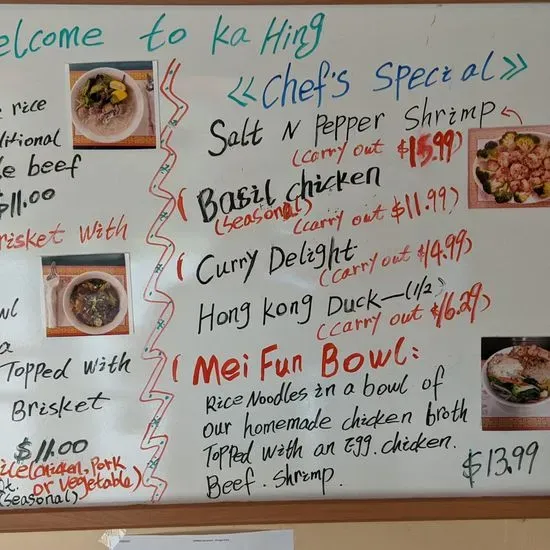 elcome to Ka Hing
rice
ditional
beef
$11.00
risket with
Topped with
Brisket
$11.00
(chicken, pork
or vegetable)
(seasonal)
《Chef's Special》
Salt N Pepper Shrimp
(carry out $15.99)
Basil chicken
(seasonal)
(carry out $11.99)
Curry Delight
(carry out $14.99)
Hong Kong Duck—(1/2)
(carry out $16.29)
Mei Fun Bowl:
Rice Noodles in a bowl of
our homemade chicken broth
Topped with an Egg. chicken.
Beef. Shrimp.
$13.99